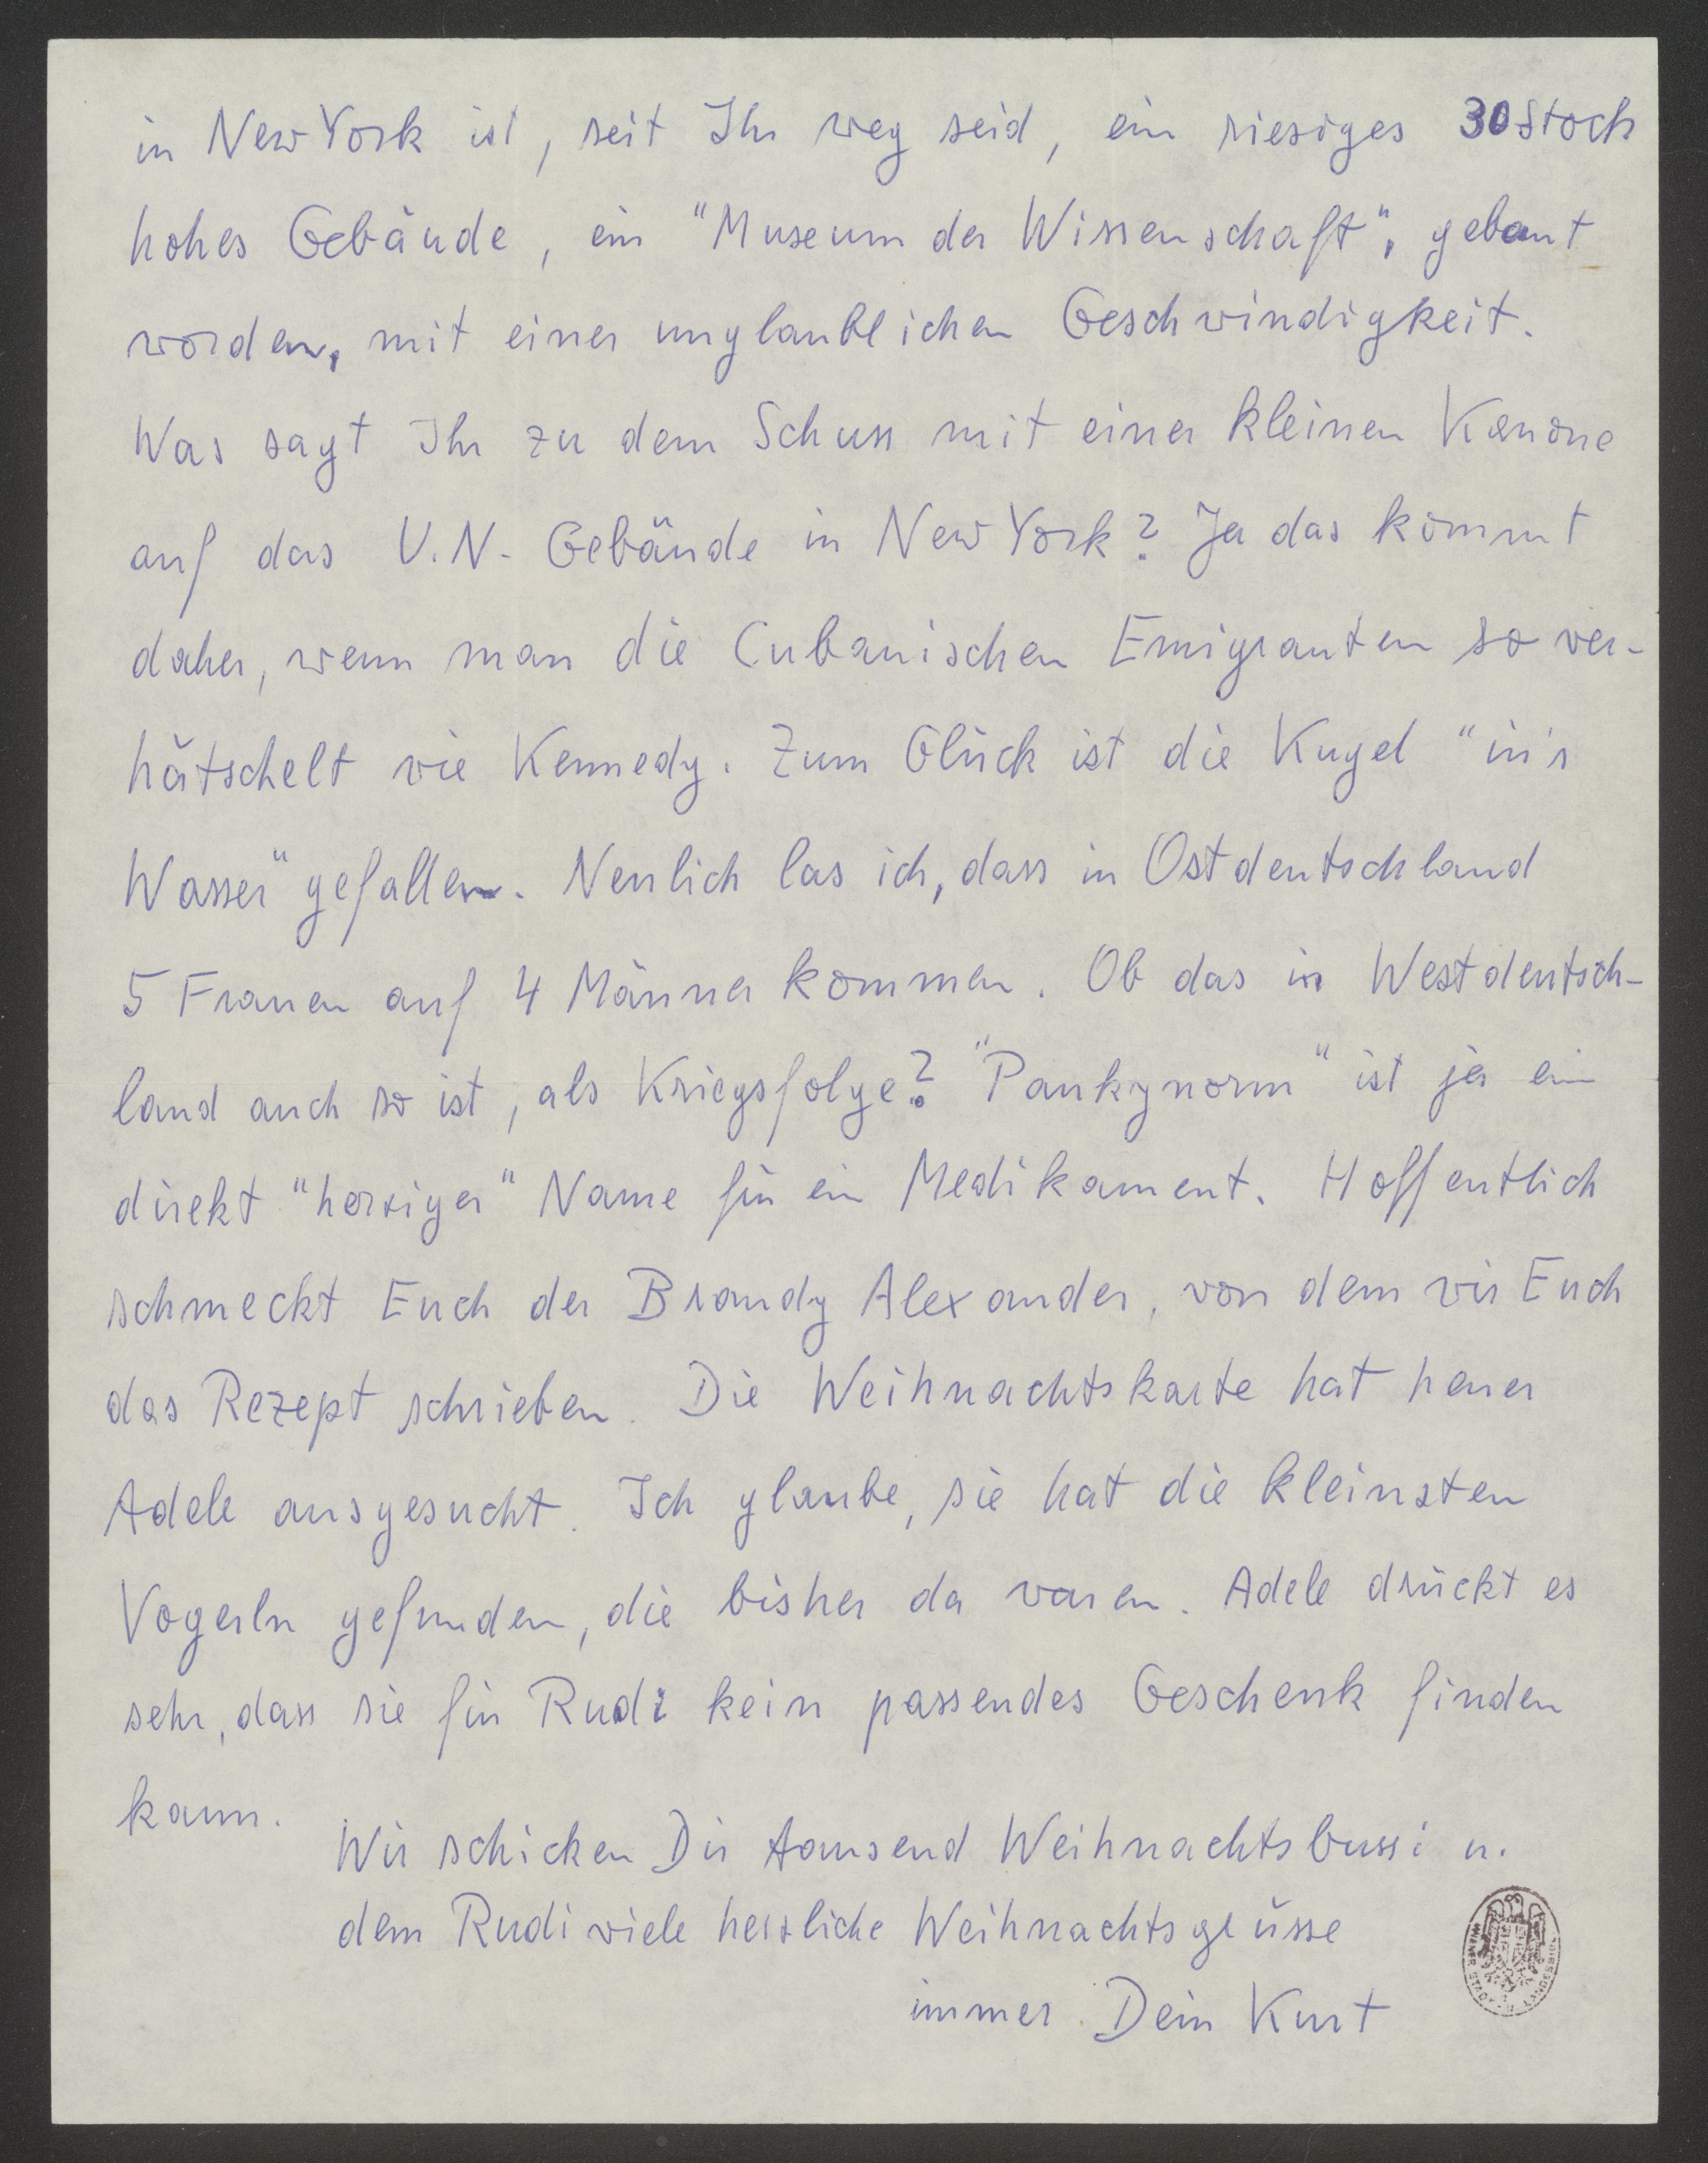 in New York ist, seit Ihr weg seid, ein riesiges 30 Stock
hohes Gebäude, ein "Museum der Wissenschaft", gebaut
worden, mit einer unglaublichen Geschwindigkeit.
Was sagt Ihr zu dem Schuss mit einer kleinen Kanone
auf das U.N.-Gebäude in New York? Ja das kommt
daher, wenn man die Cubanischen Emigranten so ver-
hätschelt wie Kennedy. Zum Glück ist die Kugel "in's
Wasser" gefallen. Neulich las ich, dass in Ostdeutschland
5 Frauen auf 4 Männer kommen. Ob das in Westdeutsch-
land auch so ist, als Kriegsfolge? "Pankynorm" ist ja ein
direkt "herziger" Name für ein Medikament. Hoffentlich
schmeckt Euch der Brandy Alexander, von dem wir Euch
das Rezept schrieben. Die Weihnachtskarte hat heuer
Adele ausgesucht. Ich glaube, sie hat die kleinsten
Vogerln gefunden, die bisher da waren. Adele drückt es
sehr, dass sie für Rudi kein passendes Geschenk finden
kann.
Wir schicken Dir tausend Weihnachtsbussi u.
dem Rudi viele herzliche Weihnachtsgrüsse
immer Dein Kurt
WIENER STADT- U. LANDESBIBL.